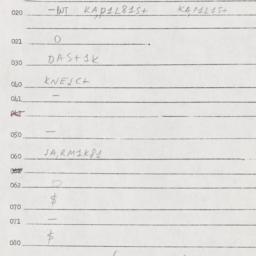 020 -WT KA,P1L81S+ KA,P1L1S+
021 O
030 DAS+1K
040 KNEJC+
041 -
050 -
060 JA,RM1K81
062
070 $
071 -
080 $